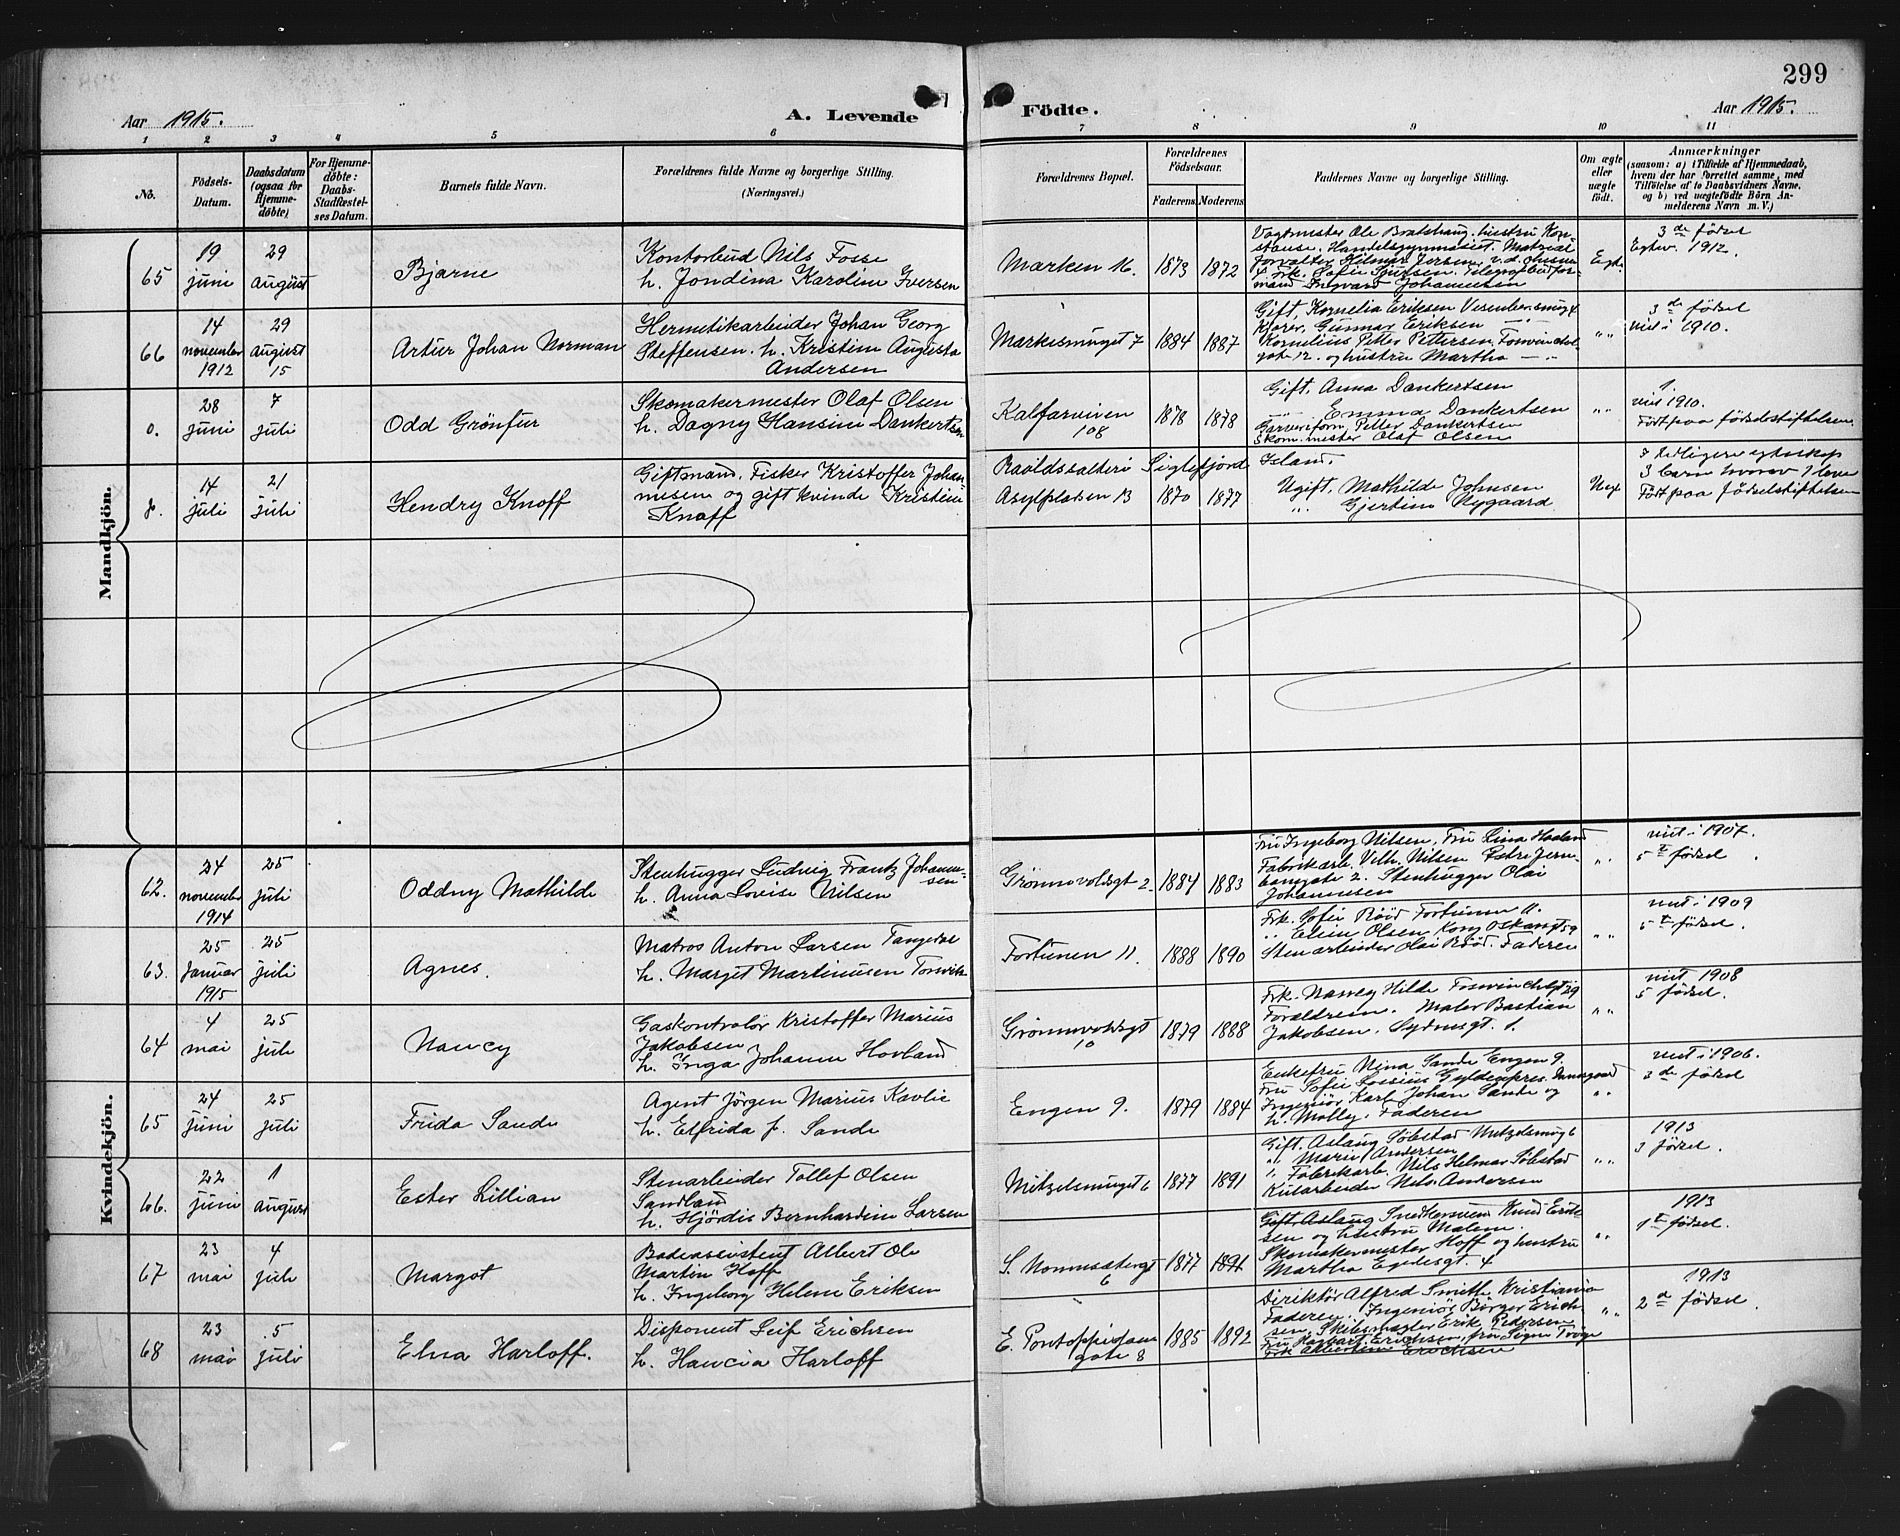 299
Aar 1915.
A. Levende
Födte.
Aar 1915.
1 2 3 4 5 6 7 8 9 10 11
No.
Födsels-
Datum.
Daabsdatum
(ogsaa for
Hjemme-
döbte)
For Hjemme-
döbte:
Daabs-
Stadfæstel-
ses Datum.
Barnets fulde Navn.
Forældrenes fulde Navne og borgerlige Stilling.
(Næringsvei.)
Forældrenes Bopæl.
Forældrenes
Födselsaar.
Faderens. Moderens.
Faddernes Navne og borgerlige Stilling.
Om ægte
eller
uægte
födt.
Anmærkninger
(saasom: a) i Tilfælde af Hjemmedaab,
hvem der har forrettet samme, med
Tilföielse af to Daabsvidners Navne,
og b) ved uægtefödte Börn An-
melderens Navn m. V.)
Mandkjön.
65
19
juni
29
august
Bjarne
Kontorbud Nils Fosse
h. Jondina Karoline Iversen
Marken 16.
1873
1872
Vagtmester Ole Bratshaug, hustru Kon-
stanse, Handelsgymnasiet. Material-
forvalter Hilmar Jersen,
Frk. Sofie Telegrafbudfor-
mand Ingvard Johannesen
Egte
3de födsel
Egtev. 1912.
66
14
november
1912
29
august
15
Artur Johan Norman
Hermetikarbeider Johan Georg
Steffensen. h. Kristine Augusta
Andersen
Markesmuget 7
1884
1887
Gift, Kornelia Eriksen
Gunnar Eriksen
Kornelius Petter Pettersen, Fosvinckels-
gate 12. og hustru Martha
" "
3de födsel
viet i 1910.
0.
28
juni
7
juli
Odd Grönfur
Skomakermester Olaf Olsen
h. Dagny Hansine Dankertsen
Kalfarveien
108
1878
1878
Gift, Anna Dankertsen
Emma Dankertsen
Petter Dankertsen
Skom.mester Olaf Olsen
" "
1.
viet 1910.
Födt paa födselsstiftelsen.
8.
14
juli
21
juli
Hendry Knoff
Giftmand, Fisker Kristoffer Johan-
nesen og gift kvinde Kristine
Knoff
Siglefjord Island.
Asylpladsen 13
1870
1877
Ugift, Mathilde Johnsen
" Gjertine Nygaard
Uex
3 barn hvorav 1 lever
Födt paa födselsstiftelsen
Kvindekjön.
62.
24
november
1914
25
juli
Oddny Mathilde
Stenhugger Ludvig Frantz Johannes-
sen
h. Anna Lovise Nilsen
Grönnevoldsgt 2.
1884
1883
Fru Ingeborg Nilsen, Fru Lina Haaland
Fabrikarb. Vilh. Nilsen Östre Jern-
banegate 2. Stenhugger Olai
Johannesen
" "
viet i 1907.
5te födsel
63.
25
Januar
1915
25
juli
Agnes.
Matros Anton Larsen Tangedal
h. Marget Martinusen Torsvik
Fortunen 11.
1888
1890
Frk. Sofie Röid Fortunen 11.
" Eline Olsen Kong Oskarsgt 59
Stenarbeider Olai Röid. Faderen
" "
viet i 1909
5te födsel.
64
4
mai
25
juli
Nancy
Gaskontrolör Kristoffer Marius
Jakobsen
h. Inga Johanne Hovland
Grönnevoldsgt
10
1879
1888
Frk. Nancy Hilde Fosvinckelsgt 29
Forældrene. Maler Bastian
Jakobsen. Sydnesgt. 1.
" "
viet 1908
5 födsel.
65
24
juni
25
juli
Frida Sande
Agent Jörgen Marius Kavlie
h. Elfrida f. Sande
Engen 9.
1879
1884
Enkefru Nina Sande Engen 9.
Fru Sofie Lossius Gyldenpris. Damsgaard
Ingeniör Karl Johan Sande og
h. Molly. Faderen
" "
viet i 1906.
3de födsel
66.
22
juni
1
august
Ester Lillian
Stenarbeider Tollef Olsen
Sandland
h. Hjördis Bernhardine Larsen
Mitzelsmuget 6
1877
1891
Gift. Aslaug Söbstad Mitzelsmug 6
" Marie Andersen
" Fabrikarb. Nils Helmar Söbstad
Kularbeider Nils Andersen
" "
1913
3 födsel.
67
23
mai
4
juli
Margot
Badeassistent Albert Ole
Martin Hoff
h. Ingeborg Helene Eriksen
6
1877
1891
Gift Aslaug Snedkersvend Knud Erik-
sen og hustru Malene.
Skomakermester Hoff og hustru
Martha Egedesgt. 4
" "
1913
1te födsel.
68
23
mai
5
juli
Elna Harloff.
Disponent Leif Erichsen
h. Haucia Harloff
E. Pontoppidans
gate 8
1885
1892
Direktör Alfred Smith, Kristiania
Faderen, Ingeniör Börger Erich-
sen, Skibsmægler Erik Pedersen
Erichsen, fru Signe
Erichsen
" "
1913
2d födsel.